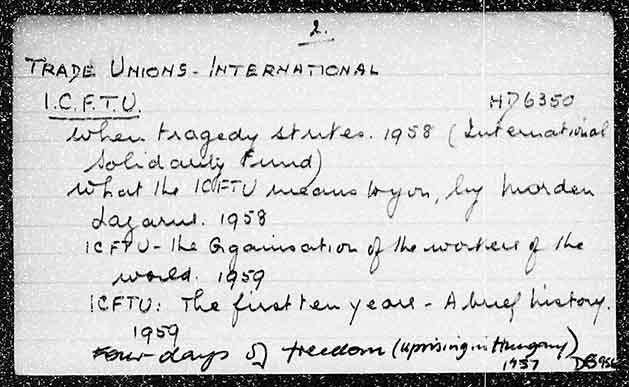 2.
TRADE UNIONS - INTERNATIONAL
I.C.F.T.U. HD6350
When tragedy strikes. 1958 (International
Solidarity Fund)
What the ICFTU means to you, by Morden
Lazarus. 1958
ICFTU - the Organisation of the workers of the
world. 1959
ICFTU: The first ten years - A brief history.
1959
Four days of freedom (uprising in Hungary)
1957 DB956